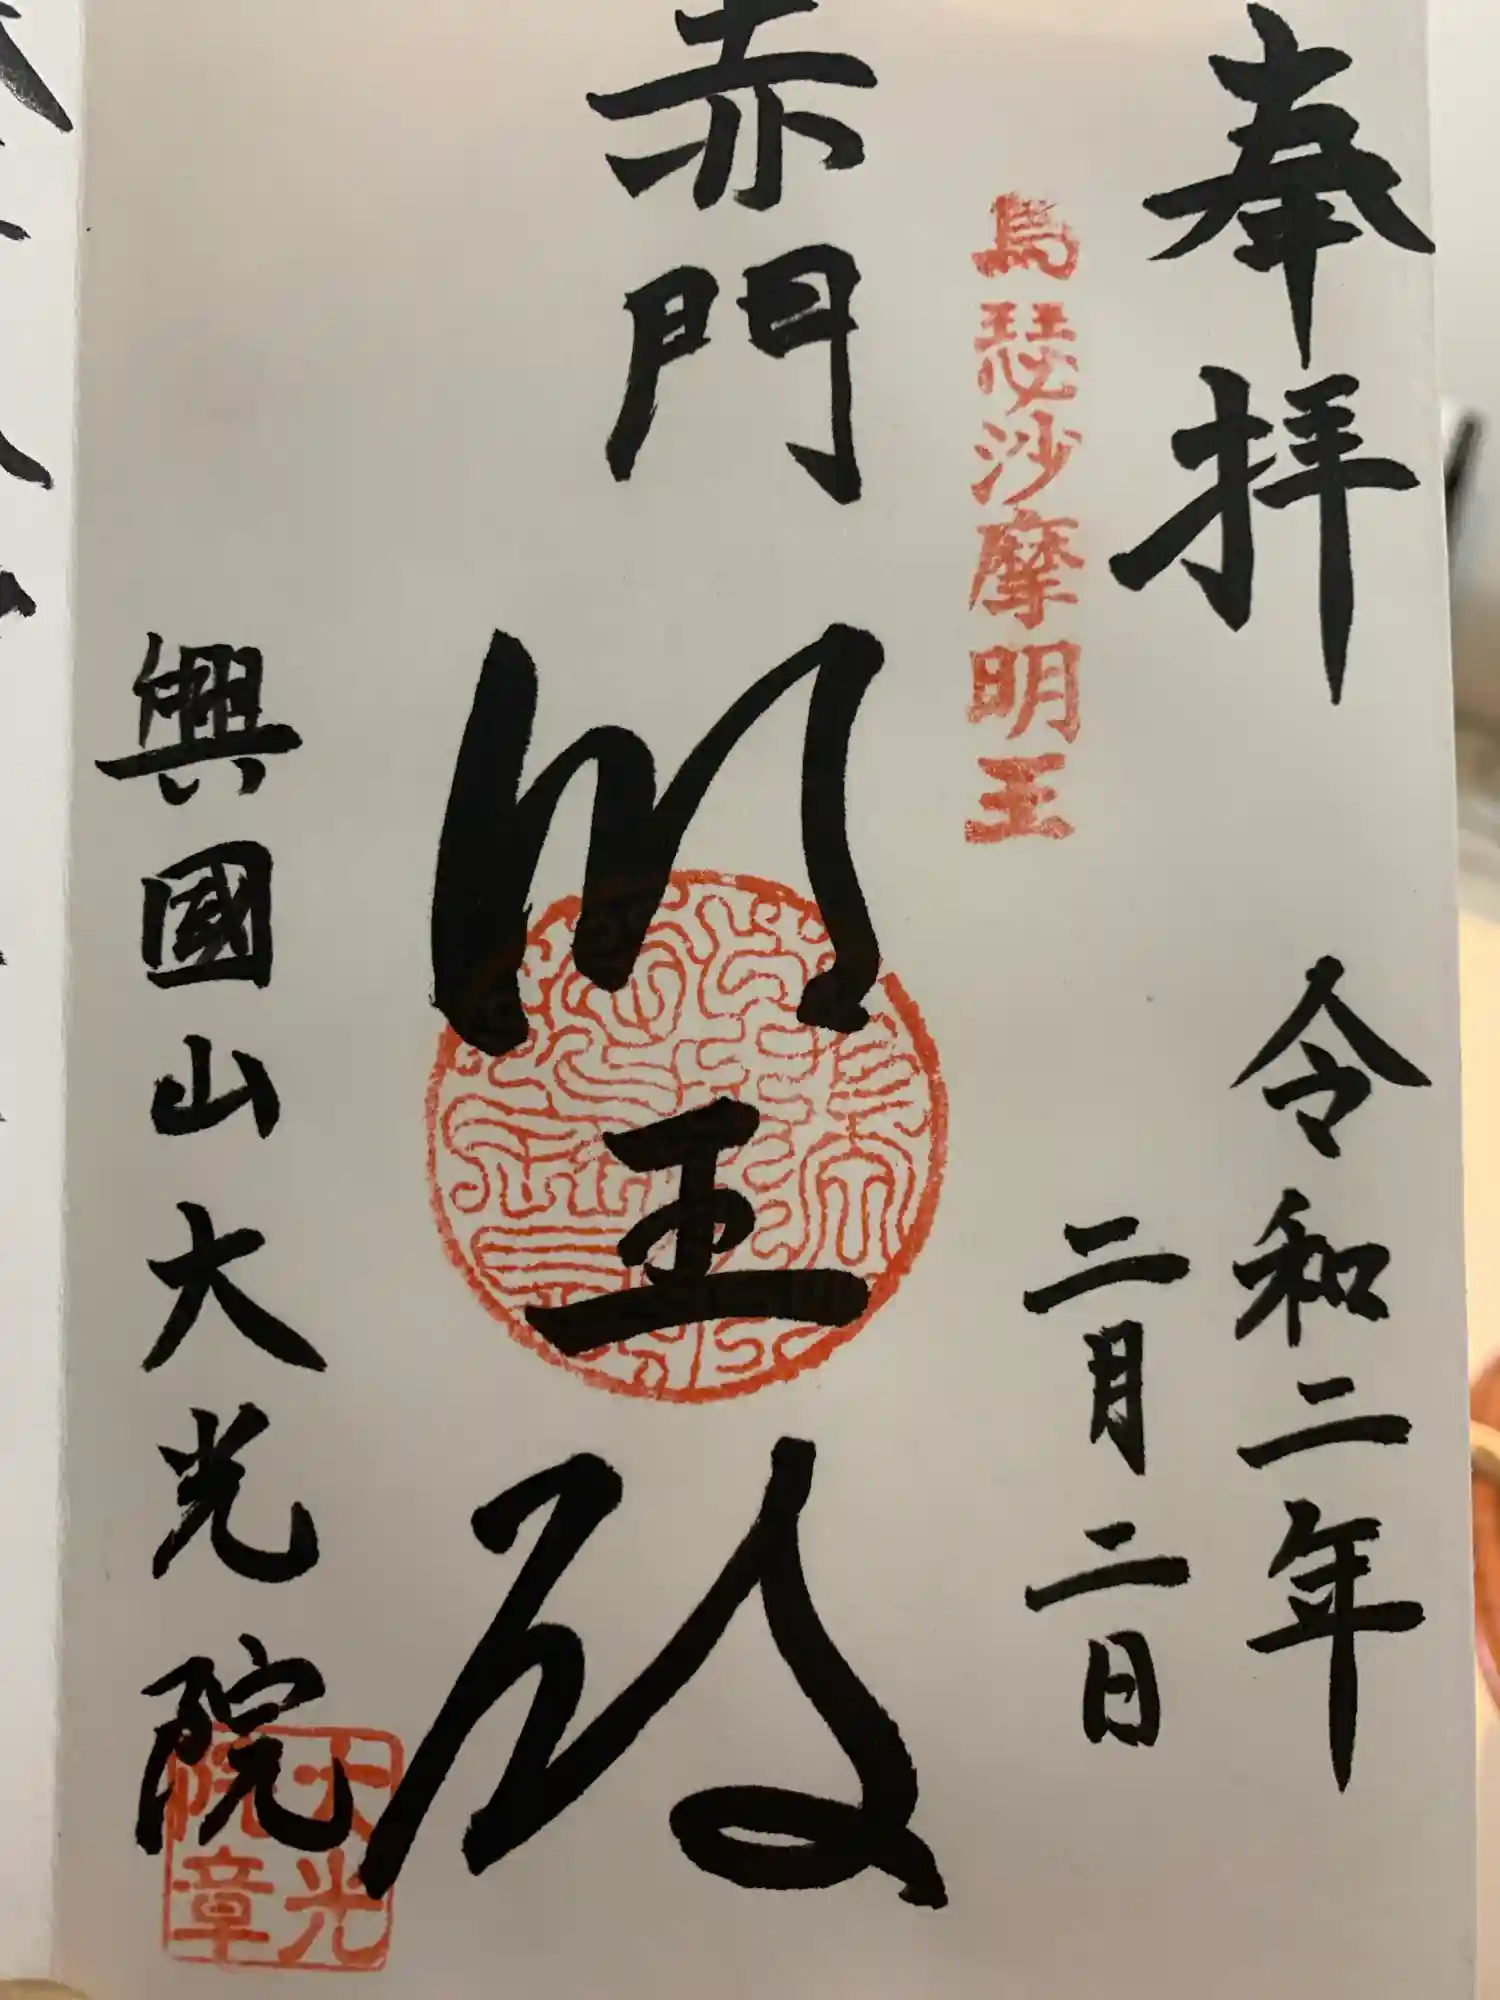 奉拝
令和二年
二月二日
烏瑟沙摩明王
赤門
明王殿
興國山大光院
大光院章